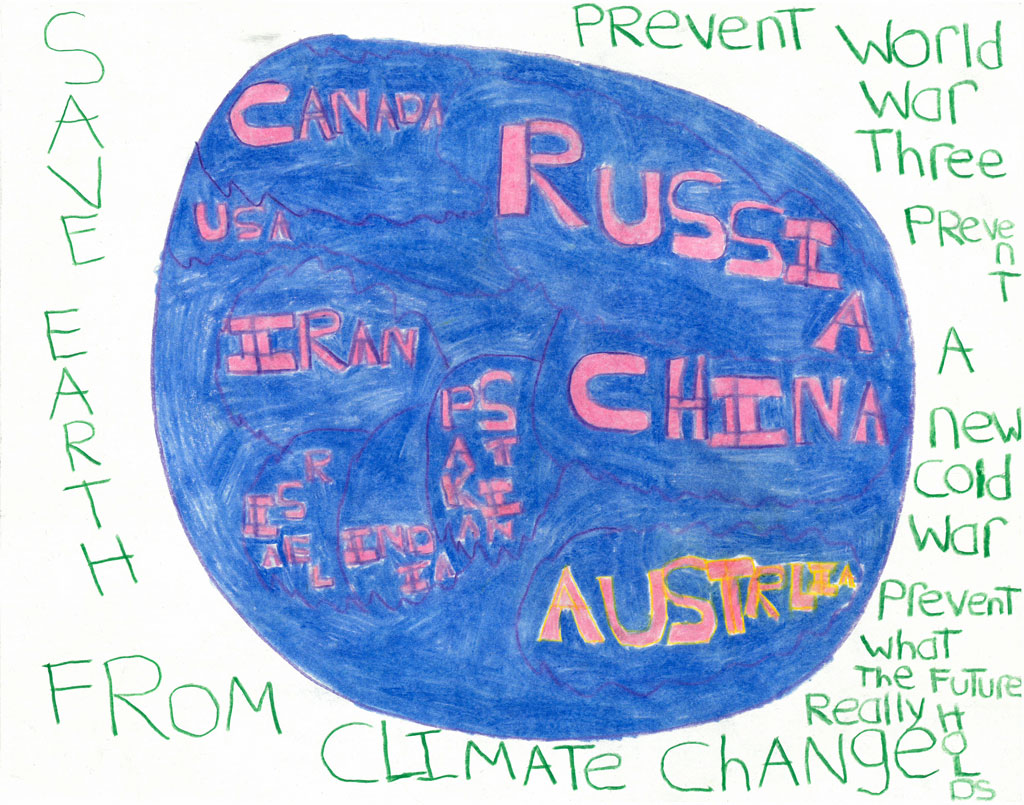 SAVE
EARTH
FROM
CLIMATE CHANGE
PREVENT World
War
Three
PREvenT
A
new
Cold
War
Prevent
what
The Future
Really HOLDS
CANADA
USA
RUSSIA
IRAN
CHINA
PAKSTIAN
ISRAEL
INDIA
AUSTRLIA